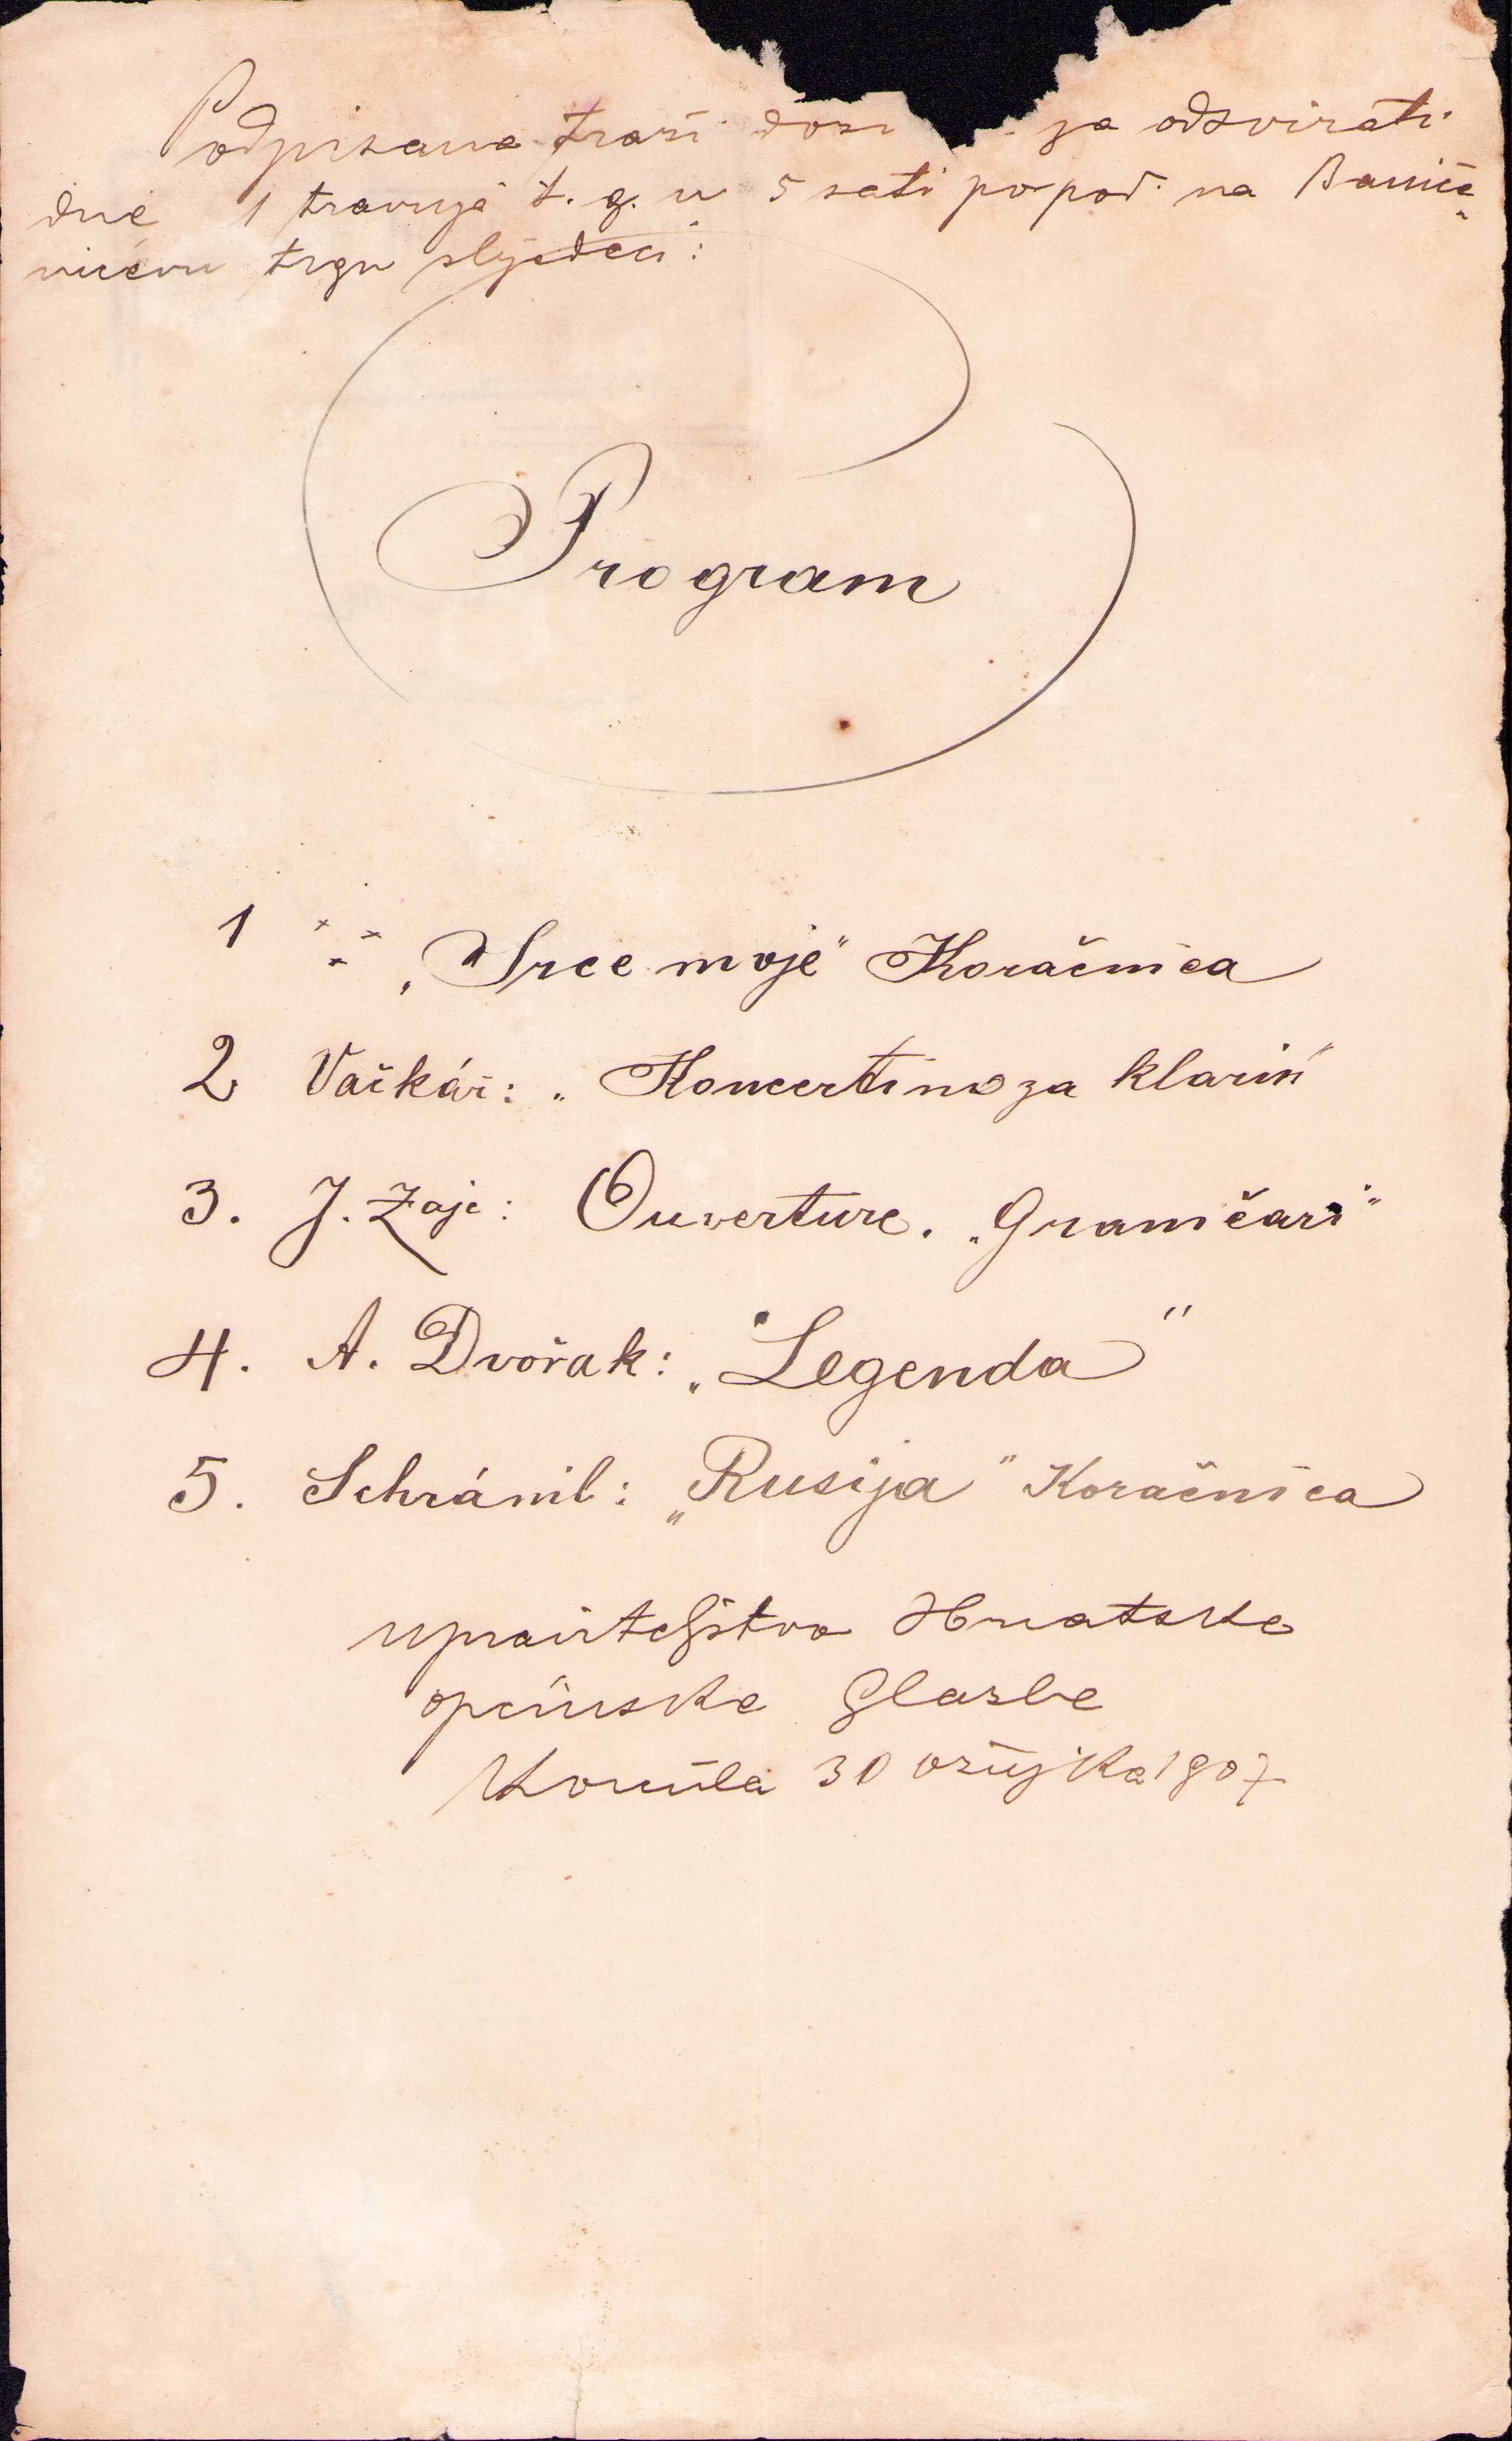 Podpisana traži za odsvirati
dne 1 travnja t. g. u 5 sati popod. na
vićevu trgu sljedeći:
Program
1 „Srce moje“ Koračnica
2 Vačkář: „Koncertino za klarin“
3. J. Zajc: Ouverture. „Graničari“
4. A. Dvořak: „Legenda“
5. Schrámil: „Rusija“ Koračnica
upraviteljstvo Hrvatske
općinske Glasbe
Korčula 30 ožujka 1907